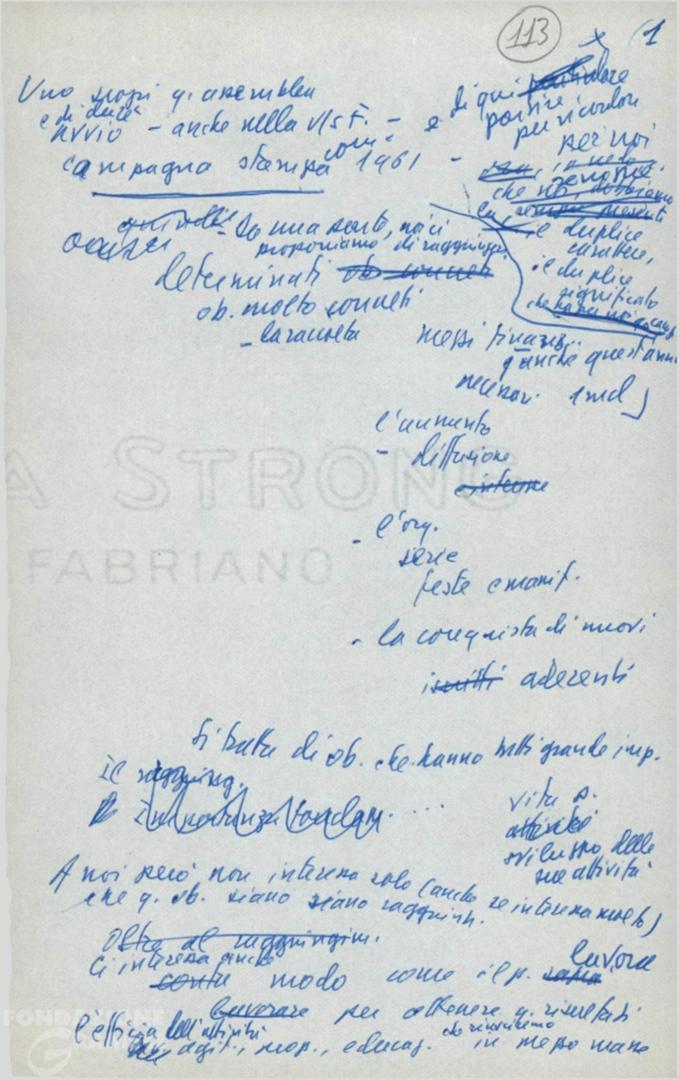 113
x (1
Uno scopi q. assemblea
e di dare
avvio - anche nella V/S F. -
campagna stampa com. 1961 -
e di qui particolare
partire
per ricordare
per noi
che
il duplice
carattere,
il duplice
significato
che
quindi - Da una parte, noi ci
proponiamo di raggiungere
determinati ob. concreti
ob. molto concreti
- la raccolta mezzi finanz..
q. anche quest'anno
necessari 1 md)
l'aumento
- diffusione
esterna
- l'org.
serie
feste e manif.
- la conquista di nuovi
iscritti aderenti
Si tratta di ob. che hanno tutti grande imp.
il raggiung.
importanza fondam. ....
vita p.
attività
sviluppo delle
sue attività
A noi però non interessa solo (anche se interessa molto)
che q. ob. siano siano raggiunti.
Oltre al raggiungim.
Ci interessa anche
come modo come il p. lavora
lavorare per ottenere q. risultati
l'efficacia dell'attività
agit., prop., educaz. che riusciremo in mezzo masse
A STRONG
FABRIANO
FONDAZIONE
GRAMSCI